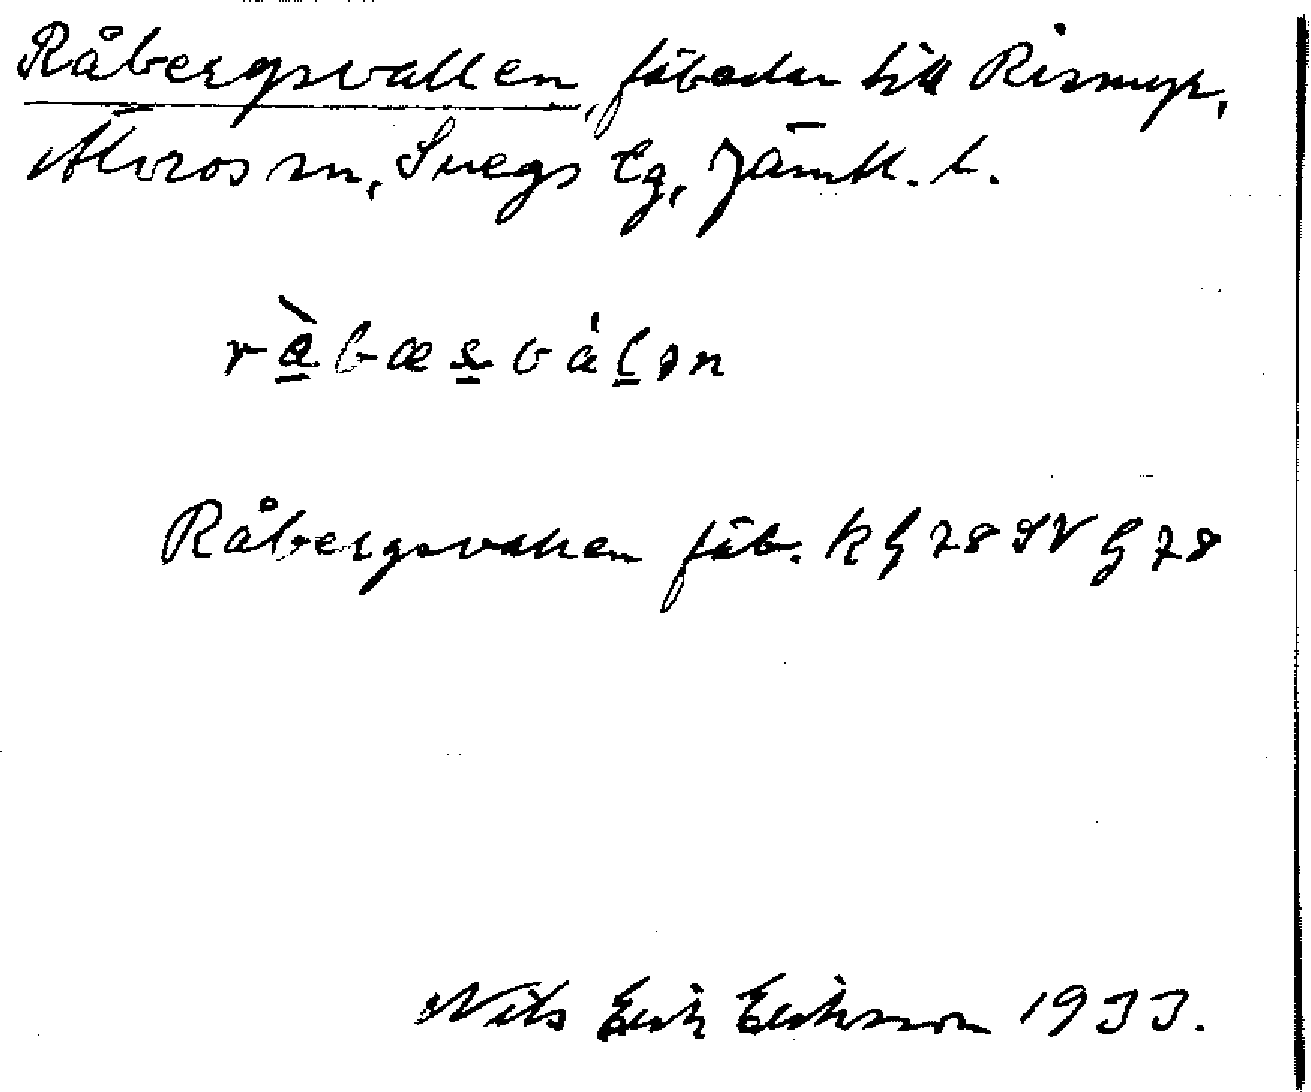 Råbergsvallen, fäbodar till Rismyr,
Älvros sn, Svegs tg, Jämtl. l.
Råbergsvallen fäb. kg 78 SV G 78
Nils Erik Eriksson 1933.